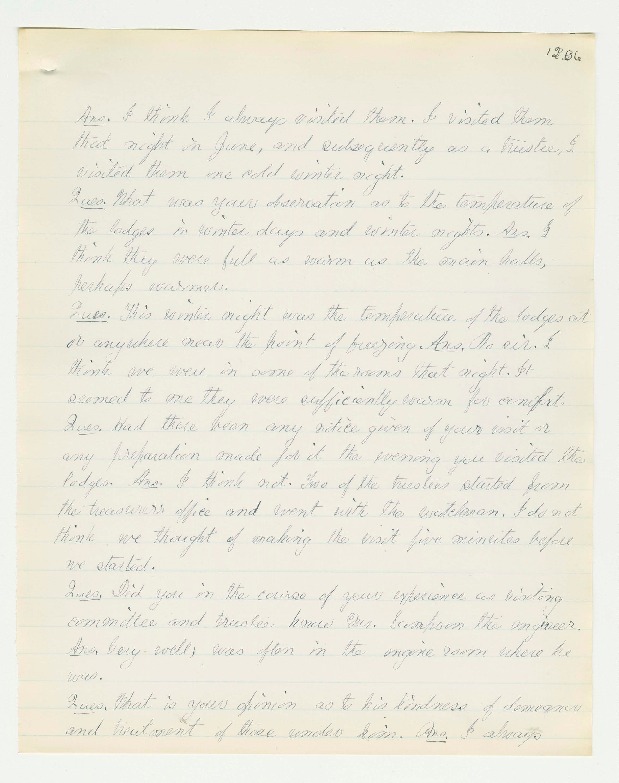 1286
Ans. I think I always visited them. I visited them
that night in June, and subsequently as a trustee, I
visited them one cold winter night.
Ques. What was your observation as to the temperature of
the lodges in winter days and winter nights. Ans. I
think they were full as warm as the main halls,
perhaps warmer.
Ques. This winter night was the temperature of the lodges at
or anywhere near the point of freezing. Ans. No sir. I
think we were in some of the rooms that night. It
seemed to me they were sufficiently warm for comfort.
Ques. Had there been any notice given of your visit or
any preparation made for it the evening you visited the
lodges. Ans. I think not. Two of the trustees started from
the treasurer's office and went with the watchman. I do not
think we thought of making the visit five minutes before
we started.
Ques. Did you in the course of your experience as visiting
committee and trustee know Mr. Sampson the engineer.
Ans. Very well; was often in the engine room where he
was.
Ques. What is your opinion as to his kindness of demeanor
and treatment of those under him. Ans. I always